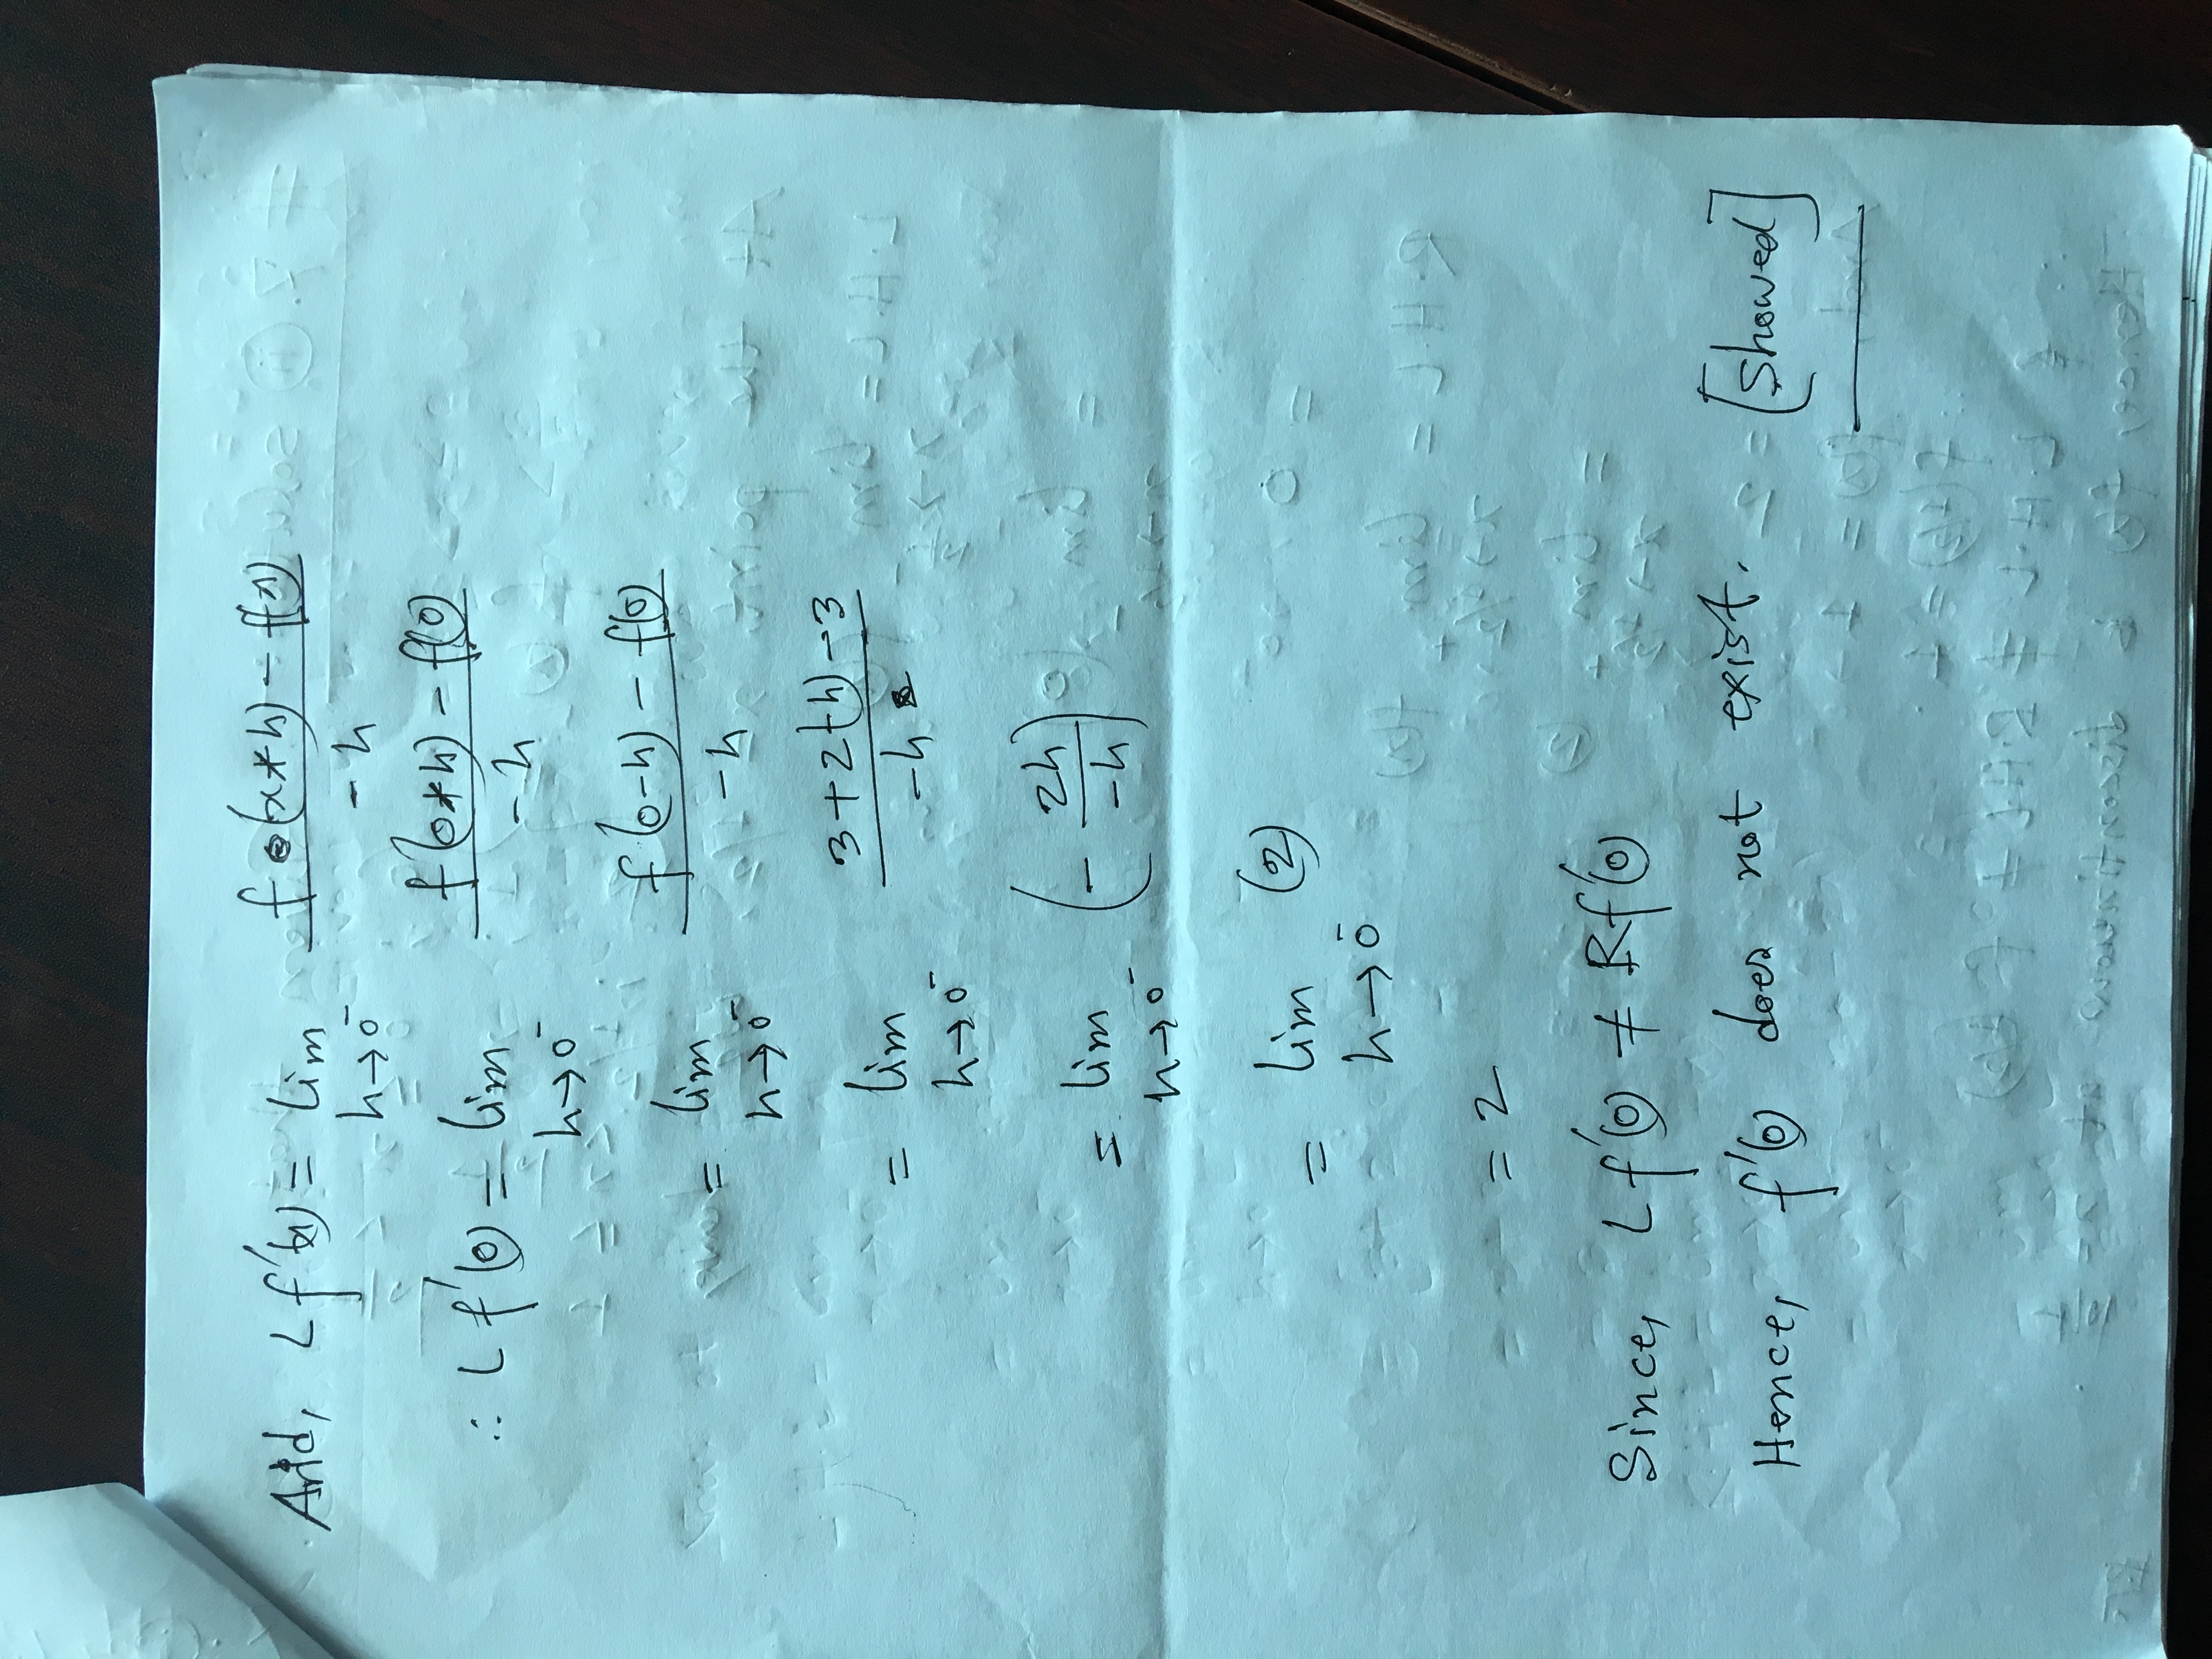 And, Lf'(x) = lim h→0⁻ f(x*h) - f(x) / -h
∴ Lf'(0) = lim h→0⁻ f(0*h) - f(0) / -h
= lim h→0⁻ f(0-h) - f(0) / -h
= lim h→0⁻ 3+2(-h)-3 / -h
= lim h→0⁻ (- 2h / -h)
= lim h→0⁻ (2)
= 2
Since, Lf'(0) ≠ Rf'(0)
Hence, f'(0) does not exist. [Showed]